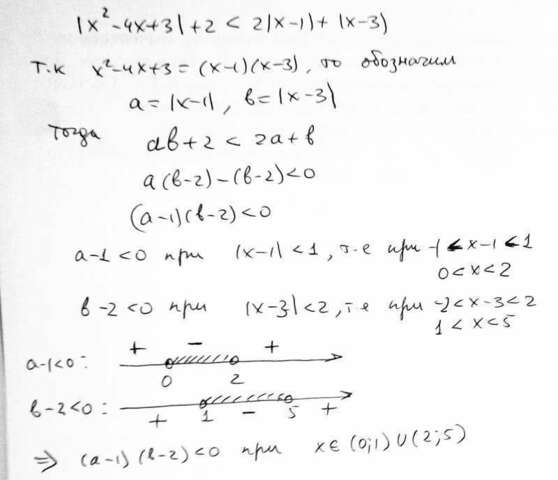 |x²-4x+3|+2 < 2|x-1|+|x-3|
Т.к x²-4x+3=(x-1)(x-3), то обозначим
a=|x-1|, b=|x-3|
Тогда ab+2 < 2a+b
a(b-2)-(b-2)<0
(a-1)(b-2)<0
a-1<0 при |x-1|<1, т.е при -1<x-1<1
0<x<2
b-2<0 при |x-3|<2, т.е при -2<x-3<2
1<x<5
+ - +
a-1<0:
0 2
b-2<0:
+ 1 - 5 +
⇒ (a-1)(b-2)<0 при x∈(0;1)∪(2;5)